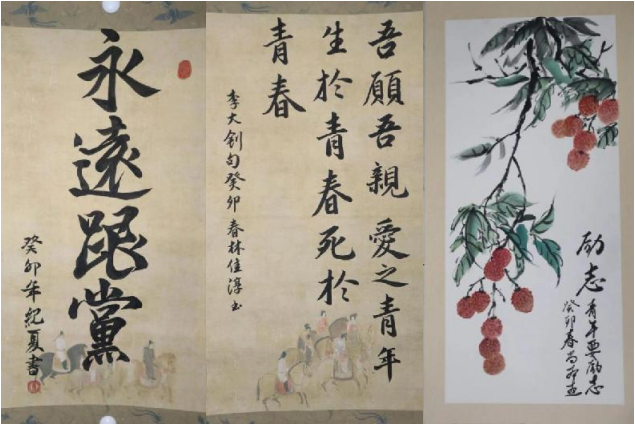 永遠跟黨
癸卯年紀夏書
吾願吾親愛之青年
生於青春死於
青春
李大釗句癸卯春林佳淳书
励志
青年要励志
癸卯春